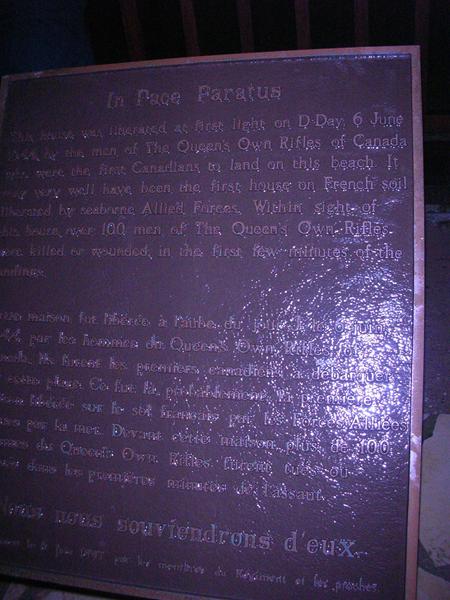 In Pace Paratus
This house was liberated at first light on D-Day, 6 June
1944, by the men of The Queen's Own Rifles of Canada
who were the first Canadians to land on this beach. It
may very well have been the first house on French soil
liberated by seaborne Allied Forces. Within sight of
this house over 100 men of The Queen's Own Rifles
were killed or wounded, in the first few minutes of the
landings.
maison fut libérée à l'aube du
par les hommes du Queen's Own Rifles
Ils furent les premiers canadiens à débarquer
cette plage. Ce fut là, probablement, la première
maison libérée sur le sol français par les Forces Alliées
par la mer. Devant cette maison, plus de 100
hommes du Queen's Own Rifles furent tués ou
dans les premières minutes de l'assaut.
nous souviendrons d'eux.
le 6 juin par les membres du Régiment et les proches.